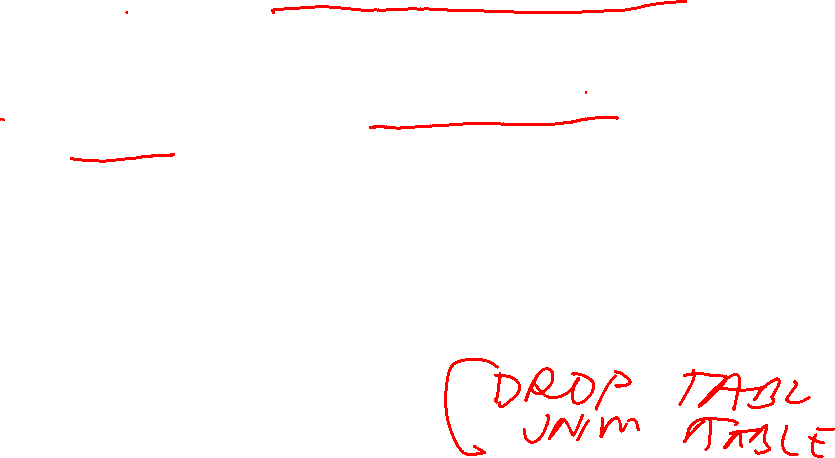 DROP TABL
UNIM TABLE